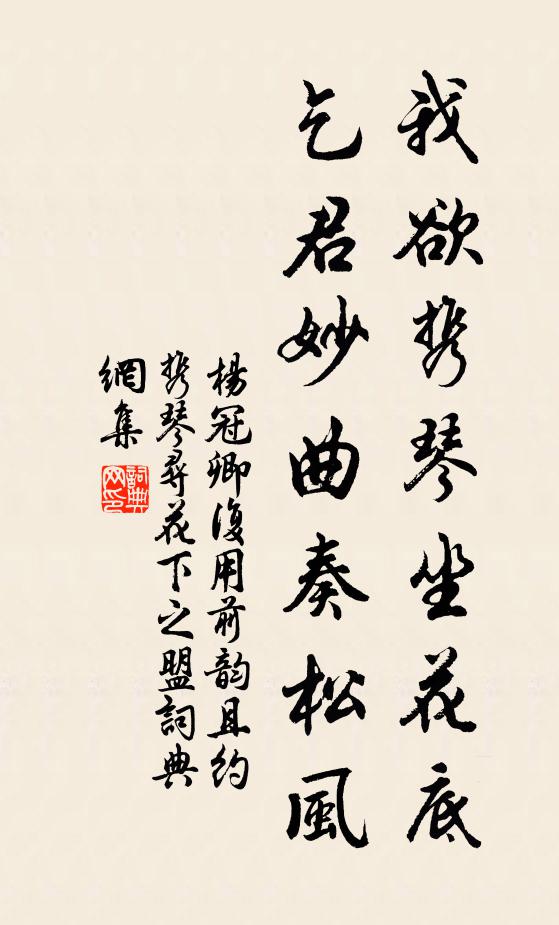 我欲携琴坐花底
乞君妙曲奏松風
楊冠卿復用前韵且約
携琴尋花下之盟詞典
網集
詞典網印